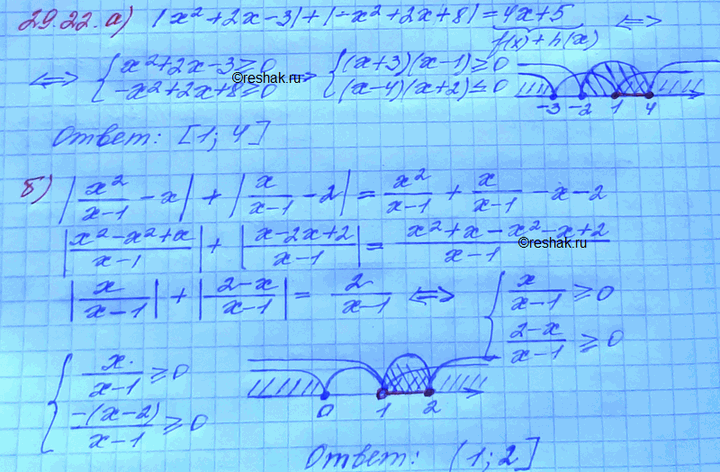 29.22. а) |x²+2x-3|+|-x²+2x+8|=4x+5 <=>
f(x)+h(x)
<=> { x²+2x-3≥0 ©reshak.ru => { (x+3)(x-1)≥0
-x²+2x+8≥0 (x-4)(x+2)≤0
-3 -2 1 4
Ответ: [1; 4]
б) |x²/(x-1) - x| + |x/(x-1) - 2| = x²/(x-1) + x/(x-1) - x - 2
|(x²-x²+x)/(x-1)| + |(x-2x+2)/(x-1)| = (x²+x-x²-x+2)/(x-1) ©reshak.ru
|x/(x-1)| + |(2-x)/(x-1)| = 2/(x-1) <=> { x/(x-1) ≥ 0
(2-x)/(x-1) ≥ 0
{ x/(x-1) ≥ 0
-(x-2)/(x-1) ≥ 0
0 1 2
Ответ: (1; 2]